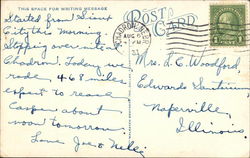 THIS SPACE FOR WRITING MESSAGE
POST CARD
Started from Sioux
City this morning
Stopping over nite in
Chadron. Today we
rode 468 miles
expect to reach
Casper about
noon tomorrow.
Love Joe & Nelle
AUG
Mrs. L. C. Woodford
Edwards Sanitarium
Naperville,
Illinois.